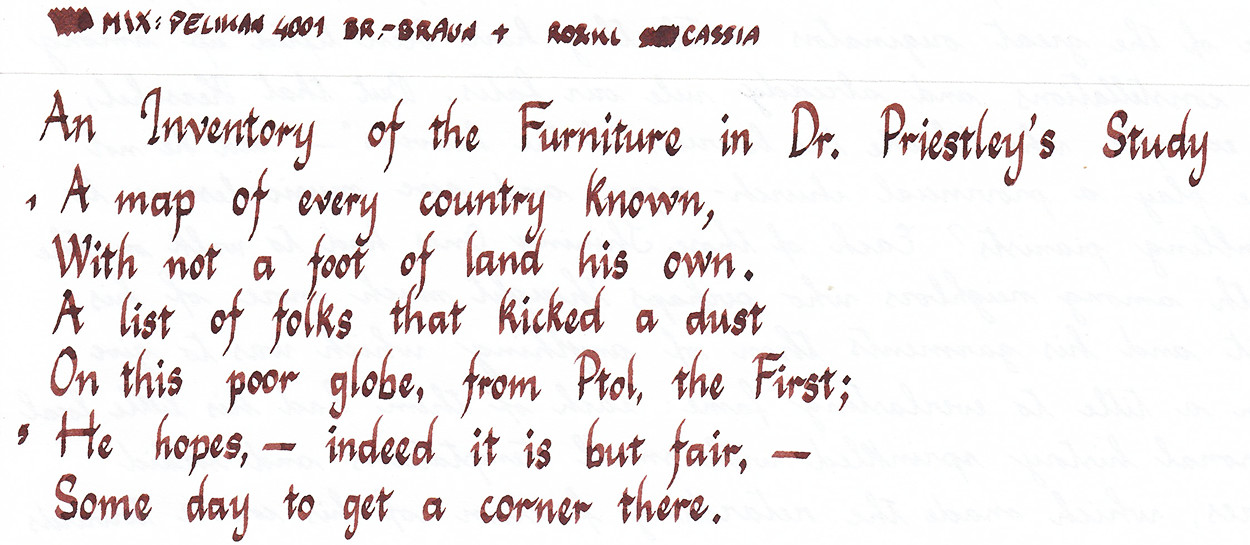 MIX: PELIKAN 4001 BR.-BRAUN + CASSIA
An Inventory of the Furniture in Dr. Priestley's Study
1 A map of every country known,
With not a foot of land his own.
A list of folks that kicked a dust
On this poor globe, from Ptol, the First;
5 He hopes, — indeed it is but fair, —
Some day to get a corner there.